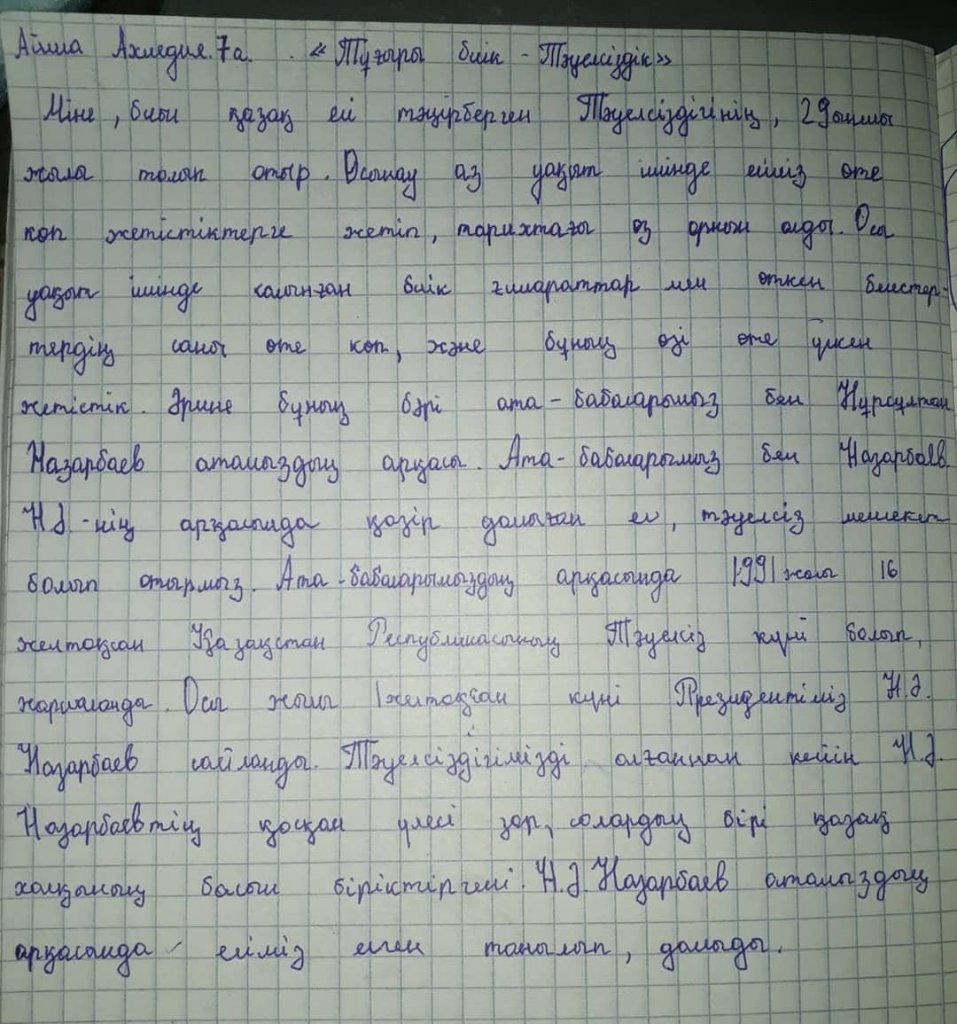 Айша Ахмедия. 7а. . «Тұғыры биік - Тәуелсіздік»
Міне, биыл қазақ елі тәңірберген Тәуелсіздігінің, 29 ыншы
жыла толып отыр. Осынау аз уақыт ішінде еліміз өте
көп жетістіктерге жетіп, тарихтағы өз орнын алды. Осы
уақыт ішінде салынған биік ғимараттар мен өткен белестер-
тердің саны өте көп, және бұның өзі өте үлкен
жетістік. Әрине бұның бәрі ата-бабаларымыз бен Нұрсұлтан
Назарбаев атамыздың арқасы. Ата-бабаларымыз бен Назарбаев
Н.Ә.-нің арқасында қазір дамыған ел, тәуелсіз мемлекет
болып отырмыз. Ата-бабаларымыздың арқасында 1991 жылы 16
желтоқсан Қазақстан Республикасының Тәуелсіз күні болып,
жарияланды. Осы жылы 1желтоқсан күні Президентіміз Н.Ә.
Назарбаев сайланды. Тәуелсіздігімізді алғаннан кейін Н.Ә.
Назарбаевтің қосқан үлесі зор, солардың бірі қазақ
халқының басын біріктіргені. Н.Ә. Назарбаев атамыздың
арқасында еліміз әлемге танылып, дамыды.